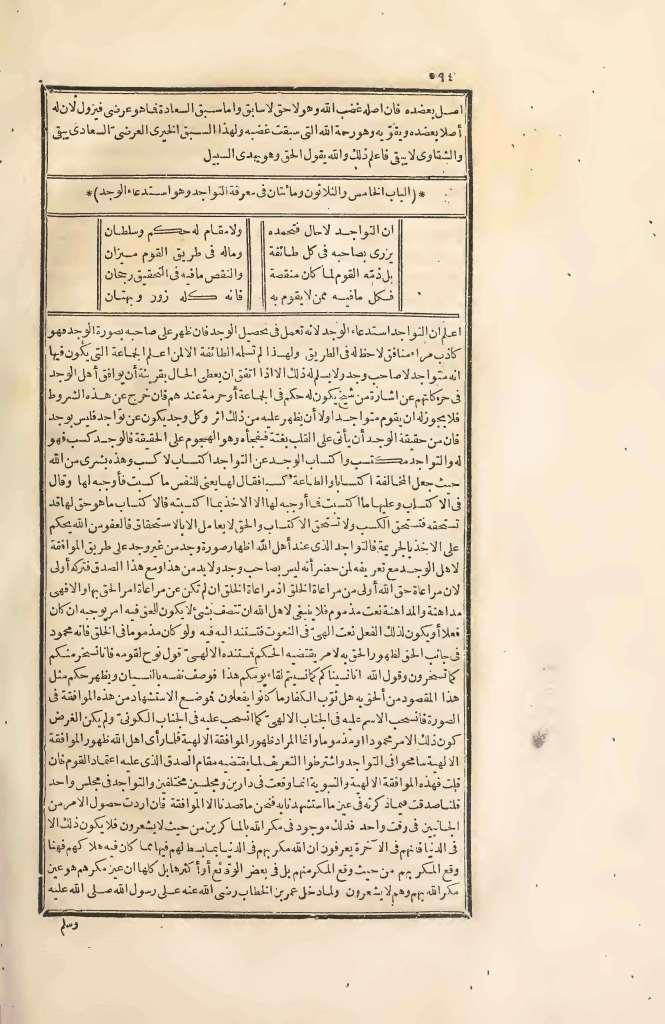 ٥٩٤
اصل يعضده فان اصله غضب الله وهو لاحق لا سابق واما سبق السعادة فما هو عرضى فيزول لان له
أصلا يعضده ويقوّيه وهو رحمة الله التى سبقت غضبه ولهذا السبق الخيرى العرضىّ السعادى يبقى
والشقاوى لا يبقى فاعلم ذلك والله يقول الحق وهو يهدى السبيل
*(الباب الخامس والثلاثون ومائتان فى معرفة التواجد وهو استدعاء الوجد)*
ان التواجد لا حال فتحمده ولا مقام له حكم وسلطان
يزرى بصاحبه فى كل طائفة وماله فى طريق القوم ميزان
بل ذمّه القوم لما كان منقصة والنقص ما فيه فى التحقيق رجحان
فكل ما فيه ممن لا يقوم به فانه كله زور وبهتان
اعلم ان التواجد استدعاء الوجد لانه تعمل فى تحصيل الوجد فان ظهر على صاحبه بصورة الوجد فهو
كاذب مراء منافق لا حظ له فى الطريق ولهذا لم تسلمه الطائفة الا لمن اعلم الجماعة التى يكون فيها
انه متواجد لا صاحب وجد ولا يسلم له ذلك الا اذا اتفق ان يعطى الحال بقرينة أن يوافق أهل الوجد
فى حركاتهم عن اشارة من شيخ يكون له حكم فى الجماعة أو حرمة عندهم فان خرج عن هذه الشروط
فلا يجوز له ان يقوم متواجدا ولا أن يظهر عليه من ذلك اثر وكل وجد يكون عن تواجد فليس بوجد
فان من حقيقة الوجد أن يأتى على القلب بغتة فيفجأه وهو الهجوم على الحقيقة فالوجد كسب فهو
له والتواجد مكتسب واكتساب الوجد عن التواجد اكتساب لا كسب وهذه بشرى من الله
حيث جعل المخالفة اكتسابا والطاعة كسبا فقال لها يعنى للنفس ما كسبت فأوجبه لها وقال
فى الاكتساب وعليها ما اكتسبت فما أوجبه لها الا الاخذ بما اكتسبته فالاكتساب ما هو حق لها قد
تستحقه فتستحق الكسب ولا تستحق الاكتساب والحق لا يعامل الا بالاستحقاق فالعفو من الله يحكم
على الاخذ بالجريمة فالتواجد الذى عند أهل الله اظهار صورة وجد من غير وجد على طريق الموافقة
لاهل الوجد مع تعريفه لمن حضر أنه ليس بصاحب وجد ولا بد من هذا ومع هذا الصدق فتركه أولى
لان مراعاة حق الله أولى من مراعاة الخلق اذ مراعاة الخلق ان لم تكن عن مراعاة امر الحق بها والا فهى
مداهنة والمداهنة نعت مذموم فلا ينبغى لاهل الله ان تتصف بشئ لا يكون للحق فيه امر يوجبه ان كان
فعلا أو يكون لذلك الفعل نعت الهىّ فى النعوت فتستند اليه فيه ولو كان مذموما فى الخلق فانه محمود
فى جانب الحق لظهور الحق به لامر يقتضيه الحكم فمستنده الالهىّ قول نوح لقومه فانا نسخر منكم
كما تسخرون وقول الله انا نسيناكم كما نسيتم لقاء يومكم هذا فوصف نفسه بالنسيان ويظهر حكم مثل
هذا المقصود من ألحق به هل ثوّب الكفار ما كانوا يفعلون فموضع الاستشهاد من هذه الموافقة فى
الصورة فانسحب الاسم عليه فى الجناب الالهىّ كما انسحب عليه فى الجناب الكونىّ ولم يكن الغرض
كون ذلك الامر محمودا او مذموما وانما المراد ظهور الموافقة الالهية فلما رأى أهل الله ظهور الموافقة
الالهية سامحوا فى التواجد واشترطوا التعريف لما يقتضيه مقام الصدق الذى عليه اعتماد القوم فان
قلت فهذه الموافقة الالهية والنبوية انما وقعت فى دارين ومجلسين مختلفين والتواجد فى مجلس واحد
فلنا صدقت فيما ذكرته فى عين ما استشهدنا به فنحن ما قصدنا الا الموافقة فان اردت حصول الامر من
الجانبين فى وقت واحد فذلك موجود فى مكر الله بالماكرين من حيث لا يشعرون فلا يكون ذلك الا
فى الدنيا فانهم فى الآخرة يعرفون ان الله مكر بهم فى الدنيا بما بسط لهم فيها مما كان فيه هلاكهم فهنا
وقع المكر بهم من حيث وقع المكر منهم بل فى بعض الوقائع أو أكثرها بل كلها ان عين مكرهم هو عين
مكر الله بهم وهم لا يشعرون ولما دخل عمر بن الخطاب رضى الله عنه على رسول الله صلى الله عليه
وسلم